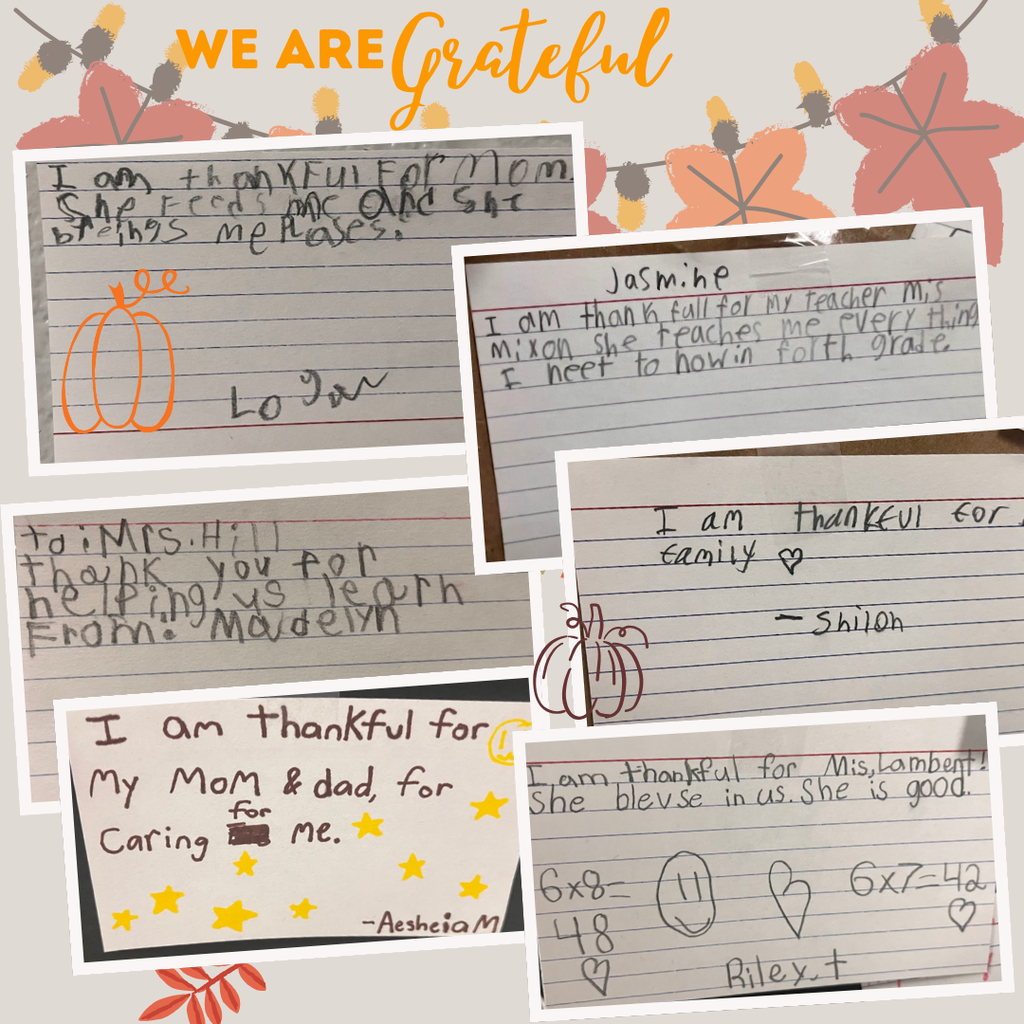 WE ARE Grateful
I am thankful for Mom
She feeds me and she
breings me Plases.
Logan
Jasmine
I am thank full for my teacher Mis
mixon she teaches me every thing
I neet to now in forth grade.
to: Mrs. Hill
thank you for
helping us learn
From: Madelyn
I am thankful for
family ♡
- Shiloh
I am thankful for
My Mom & dad, for
for
Caring me.
-Aesheia M
I am thankful for Mis, Lambert!
She blevse in us. She is good.
6x8=
48
6x7=42
Riley.t